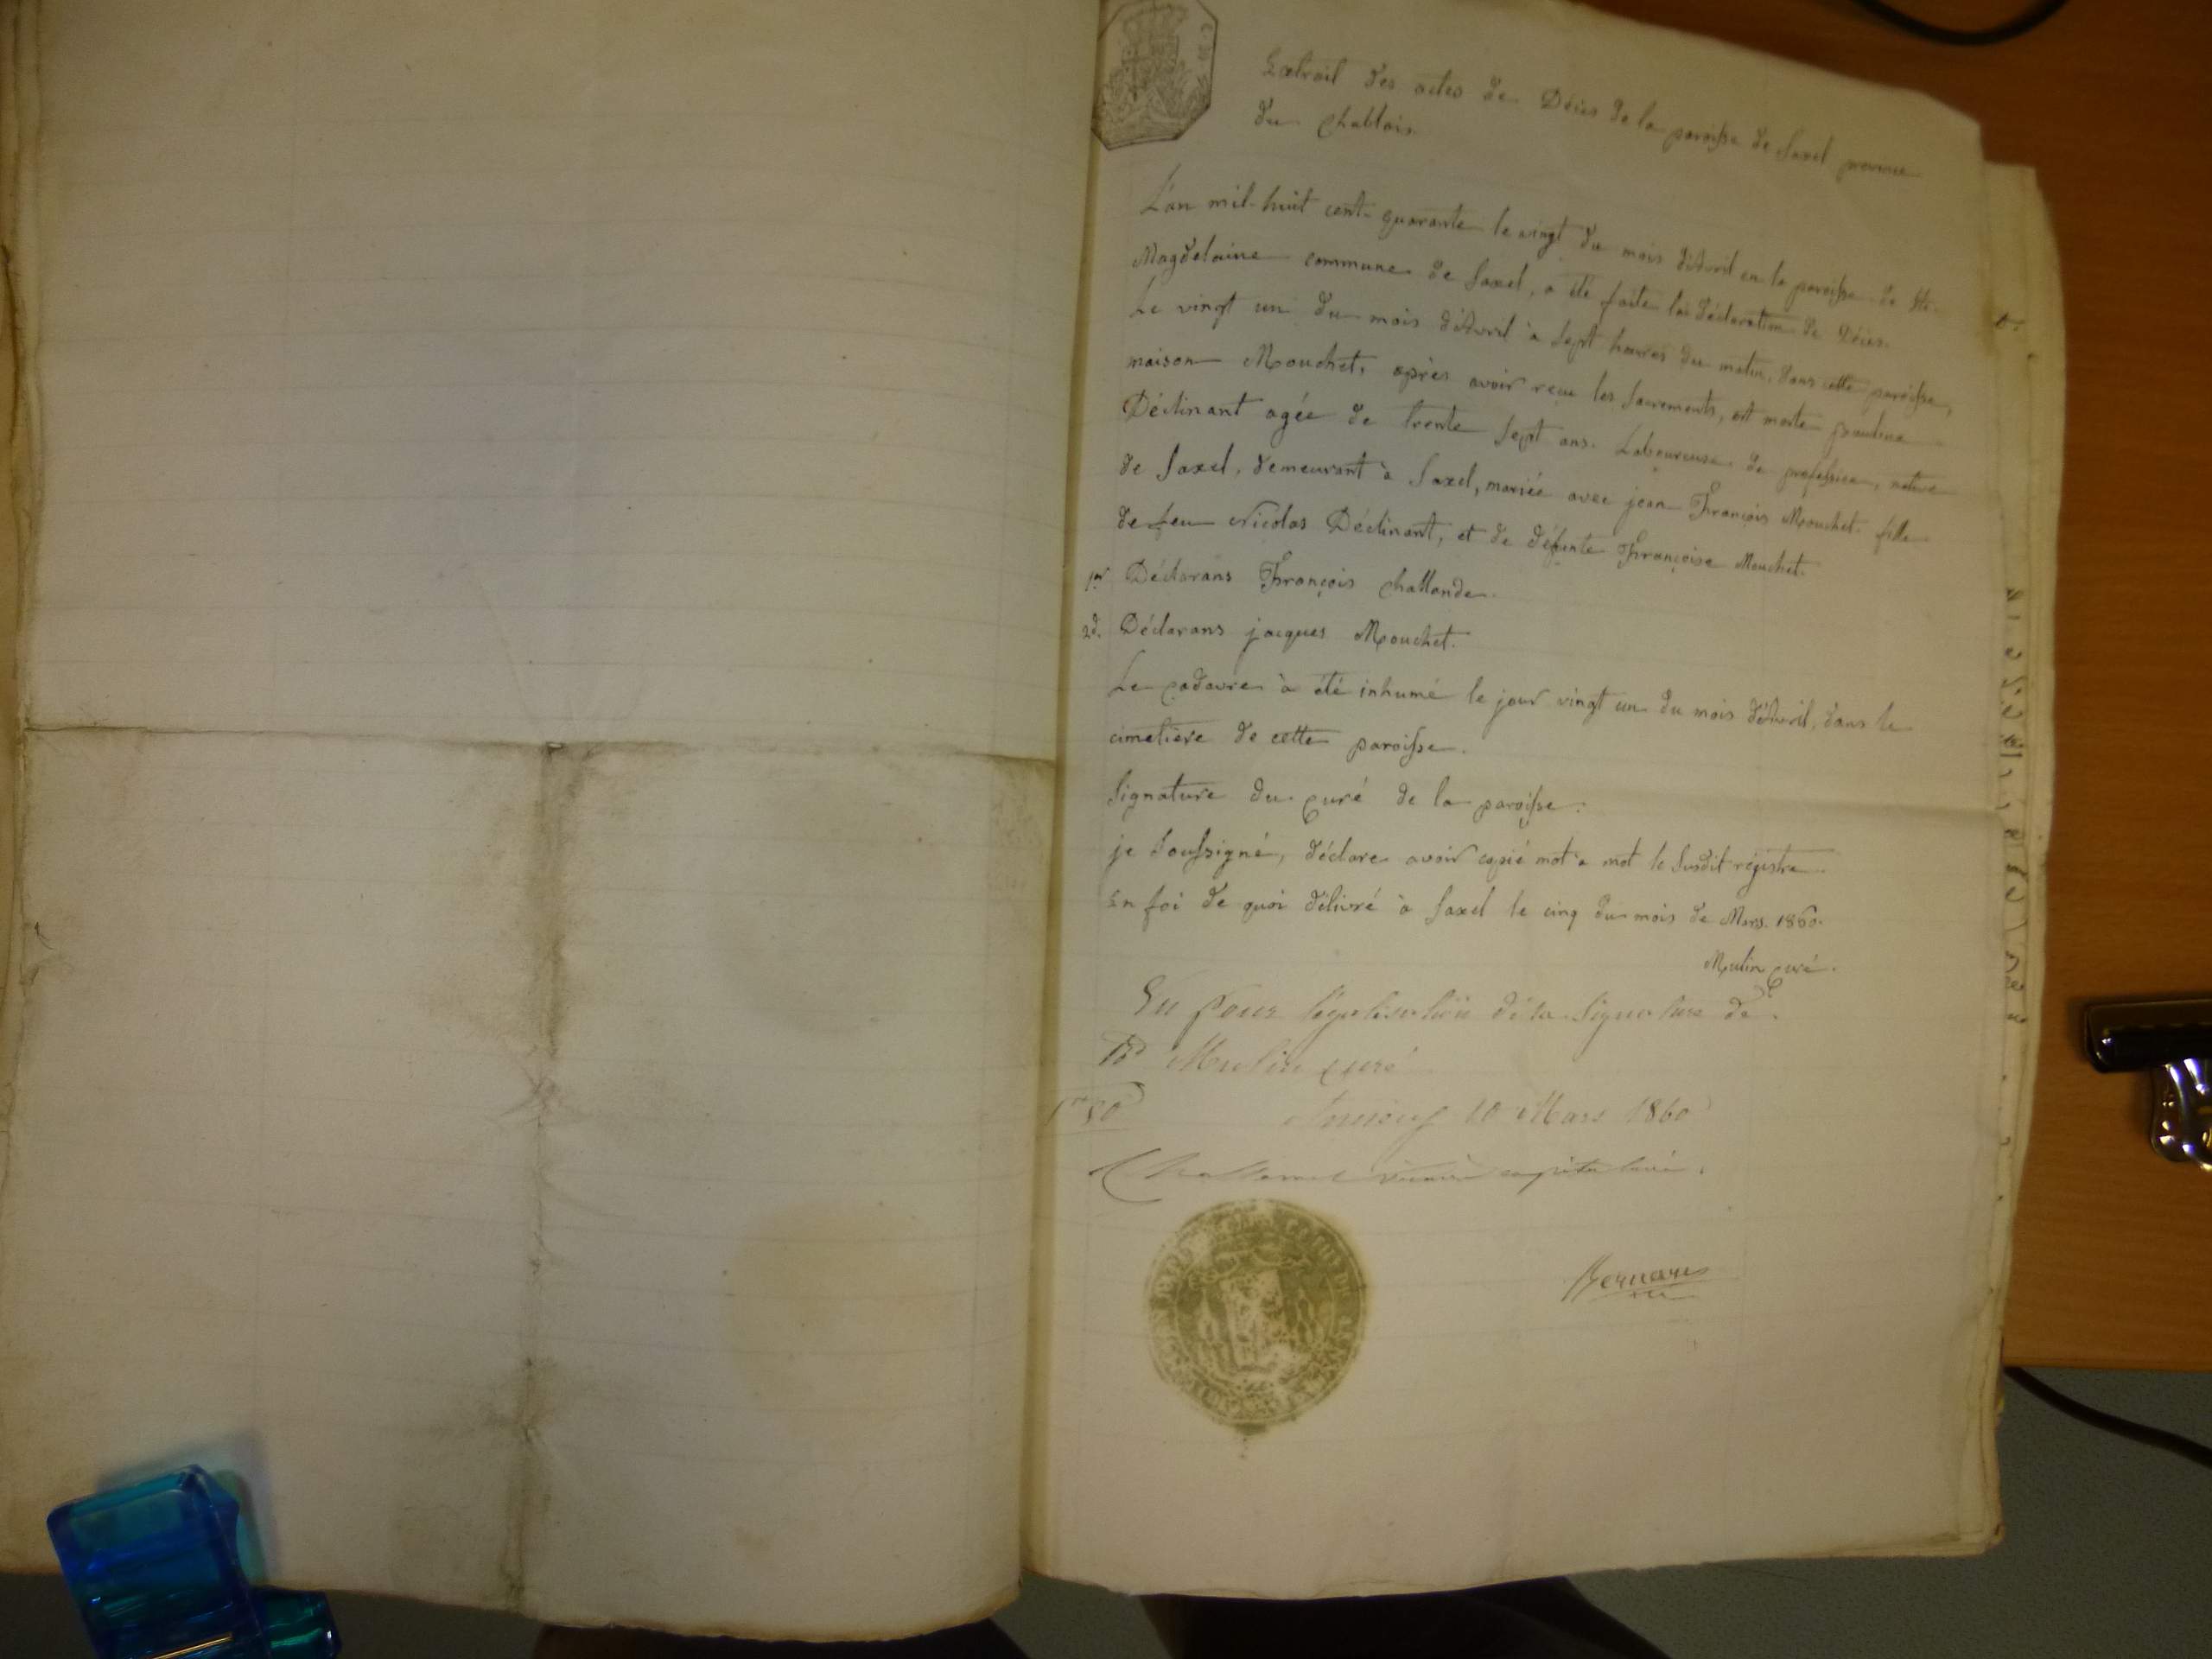 Extrait des actes de Décès de la paroisse de Saxel province
du Chablais.
L'an mil-huit cent-quarante le vingt du mois d'Avril en la paroisse de Ste.
Magdelaine commune de Saxel, a été faite la déclaration de Décès.
Le vingt un du mois d'Avril à sept heures du matin, dans cette paroisse,
maison Mouchet, après avoir reçu les sacrements, est morte pauline
Déclinant agée de trente sept ans. Laboureuse de profession, native
de Saxel, demeurant à Saxel, mariée avec jean François Mouchet. fille
de feu Nicolas Déclinant, et de défunte Françoise Mouchet.
1er Déclarans François Challande.
2d. Déclarans jacques Mouchet.
Le cadavre à été inhumé le jour vingt un du mois d'Avril, dans le
cimetière de cette paroisse.
Signature du curé de la paroisse:
je soussigné, déclare avoir copié mot à mot le susdit régistre.
En foi de quoi délivré à Saxel le cinq du mois de Mars. 1860.
Mulin curé.
Vu pour légalisation de la Signature de
Rd Mulin curé
Annecy 10 Mars 1860
Challamel vicaire capitulaire.
Bernard